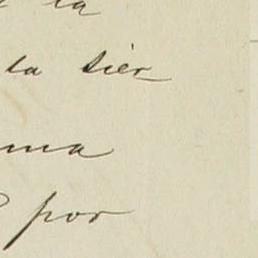 la
la sier
ma
por